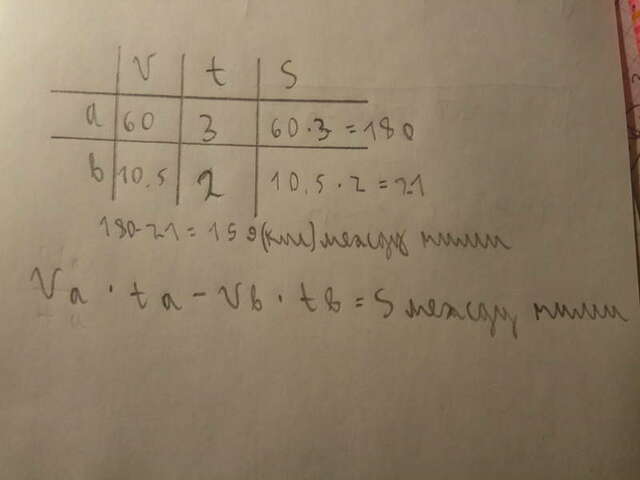 V t S
a 60 3 60·3=180
b 10,5 2 10,5·2=21
180-21=159(км) между ними
Va·ta-Vb·tb=S между ними